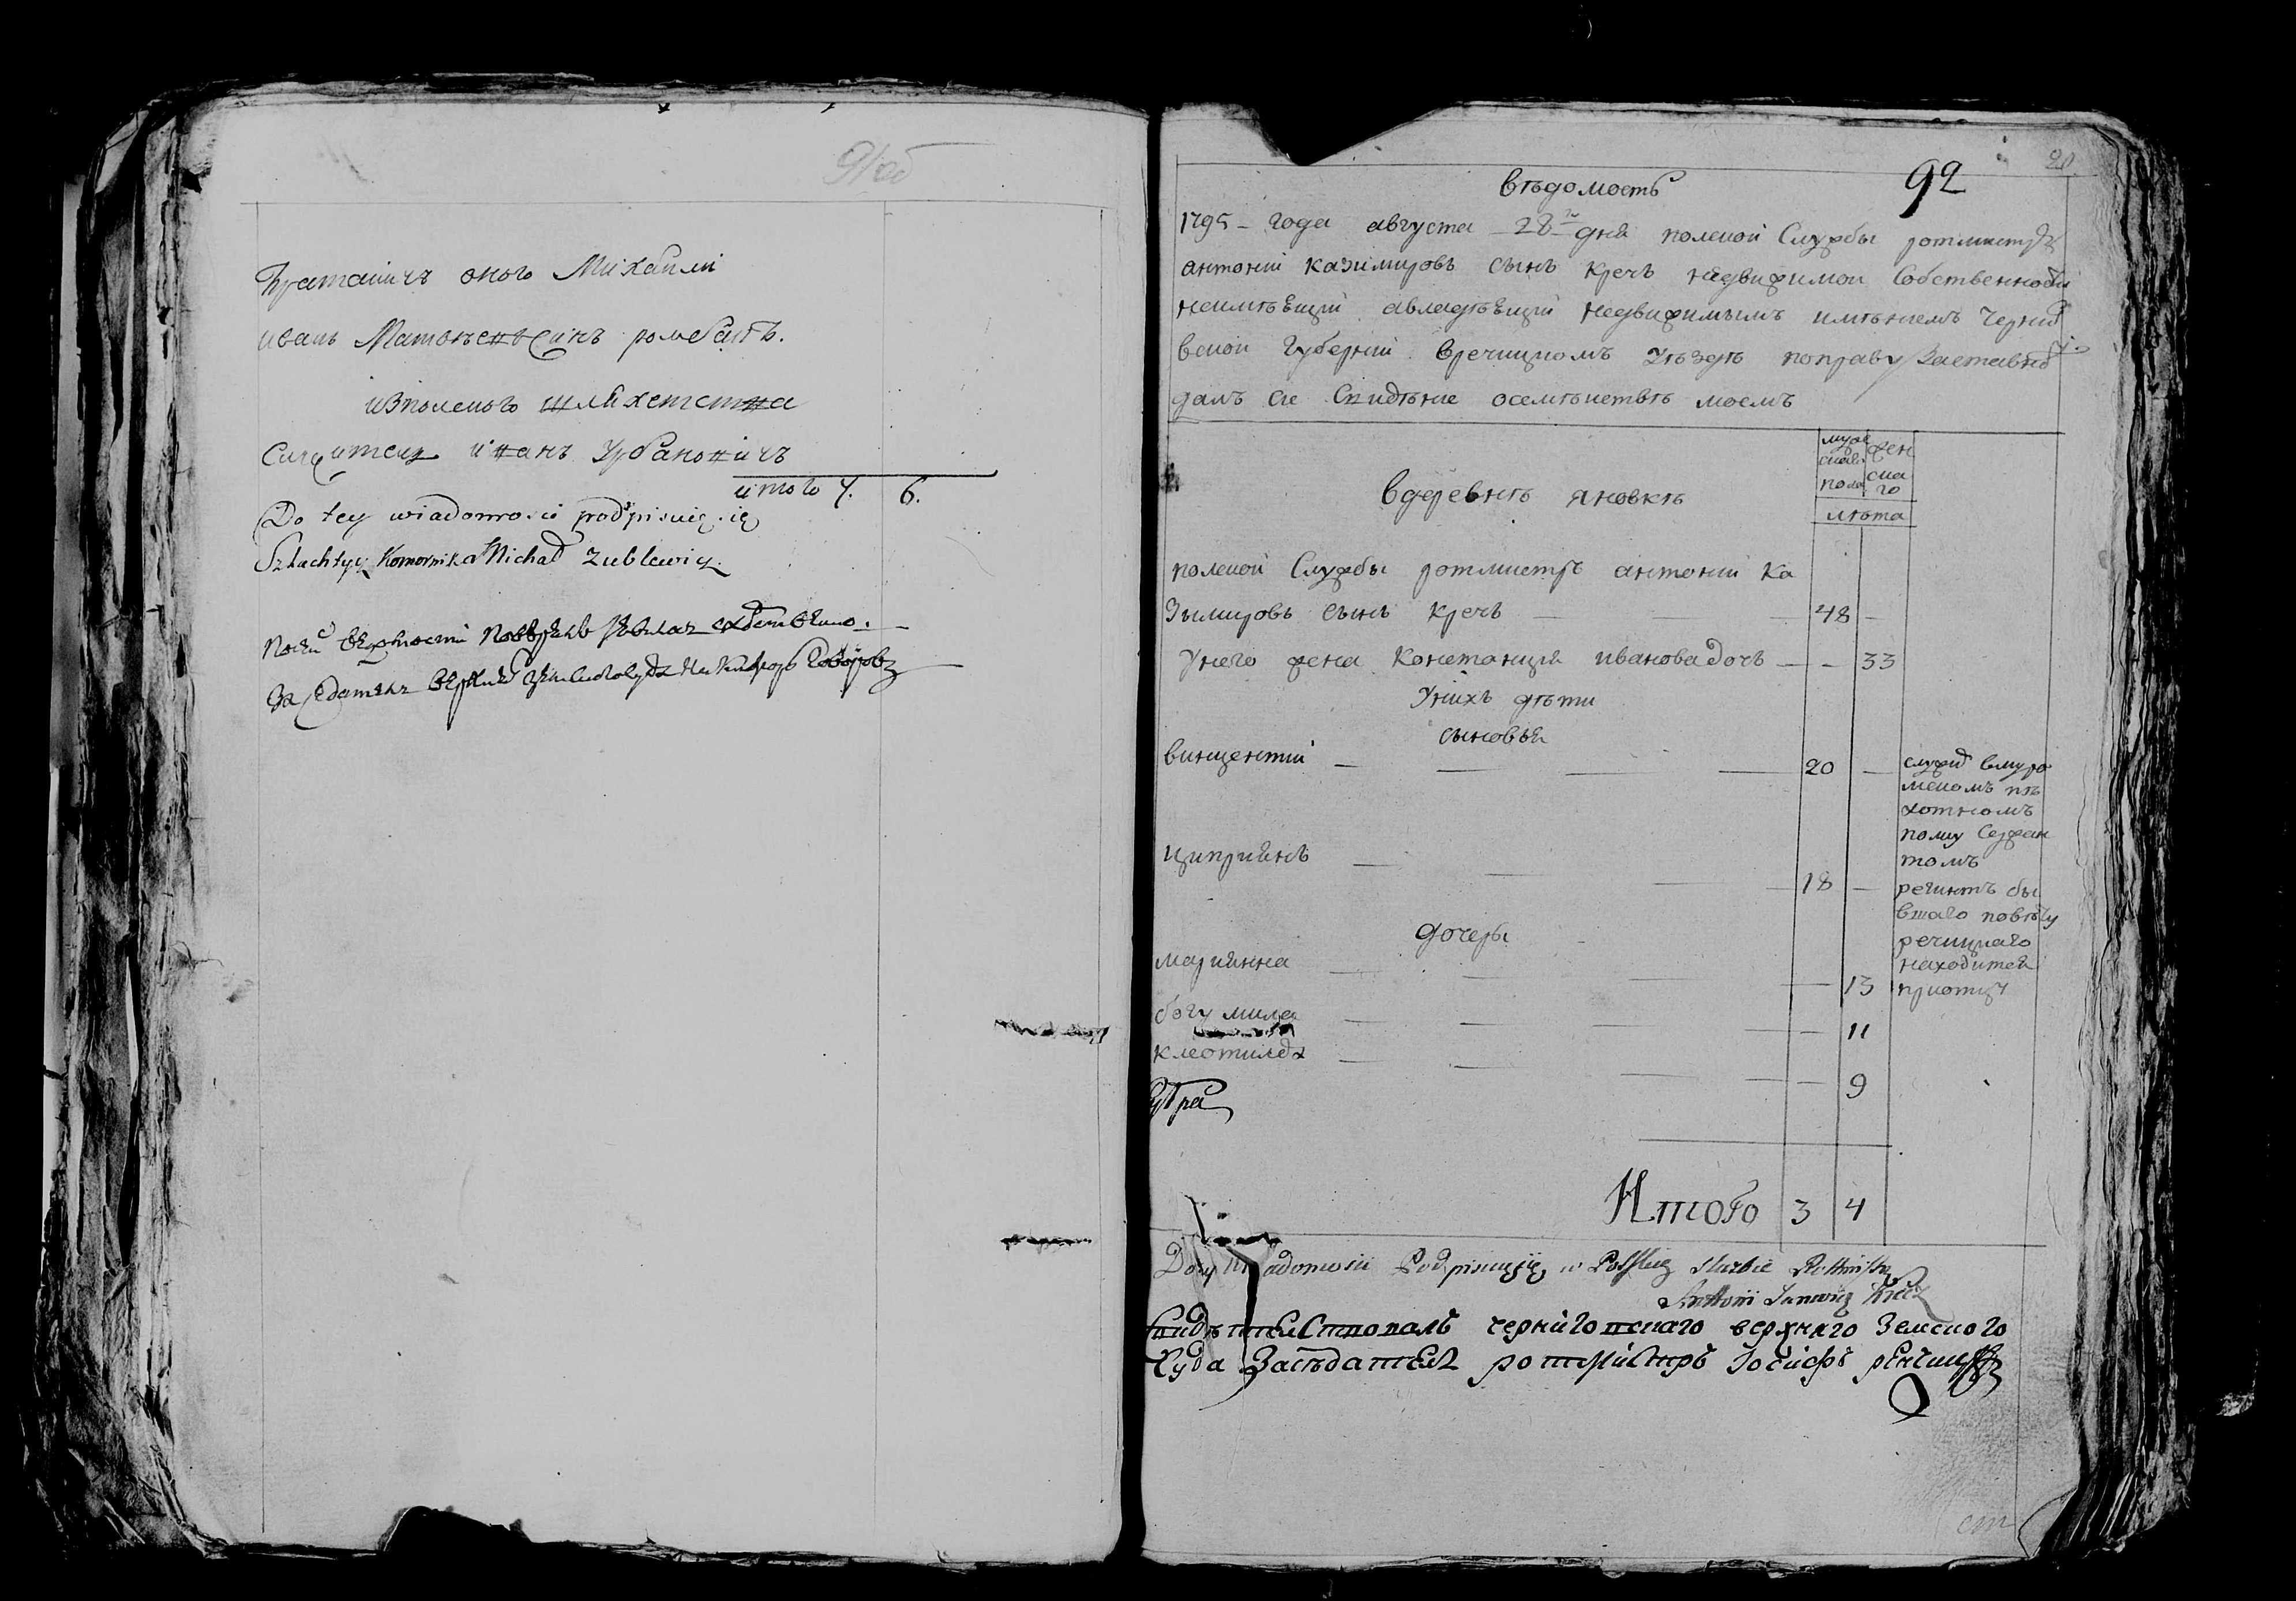 91об
Братаничъ оного Михаили
иванъ Матөнеевъ Синъ
изполского шляхетства
иванъ Урбановичъ
итого 7. 6.
Do tey wiadomosci podpisuię się
Szlachtycz Komornika Michał Zublewicz.
По сей ведомости поверялъ
Заседатель верхнего
92
20
вѣдомость
1795 – года августа – 28го дня полской Службы ротмистръ
антоній казимировъ сынъ кречъ недвижимои Собственности
неимѣющій авладѣющій недвижимымъ имѣніемъ Черниго
вскои Губерніи вречицкомъ уѣздѣ поправу Заставно
далъ сіе Свидѣние осемѣйствѣ моемъ
муже
ска
пола
жен
ска
го
лѣта
вдеревнѣ яновкѣ
полской Службы ротмистръ антоній ка
зимировъ сынъ кречъ — 48 —
Унего жена констанція иванова дочь — – 33
Унихъ дѣти
сыновья
винцентій — — — — 20 —
служит вмуро
мскомъ пѣ
хотномъ
полку Сержан
томъ
циприянъ — — — — 18 —
регинтъ бы
вшаго повѣту
речицкаго
находится
приотцу
дочеры
марияна — — — — 13
богумила — — — — 11
клеотилда — — — — 9
Итого 3 4
Do tey Wiadomosci Podpisuięsię w Polskiey służbie Rotmistrz
Antoni Krecz
Свидѣтелствовалъ черниговскаго верхняго Земского
Суда Засѣдатель ротмистръ Іосифъ